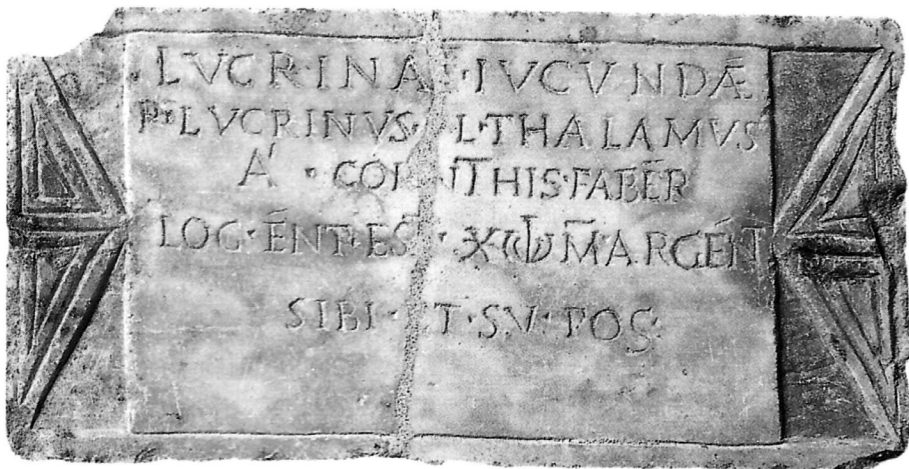 LVCRINAE·IVCVNDAE
P·LVCRINVS·L·THALAMVS
A·CORINTHIS·FABER
LOC·ENT·EST·ARGENT
SIBI·ET·SV·POS·